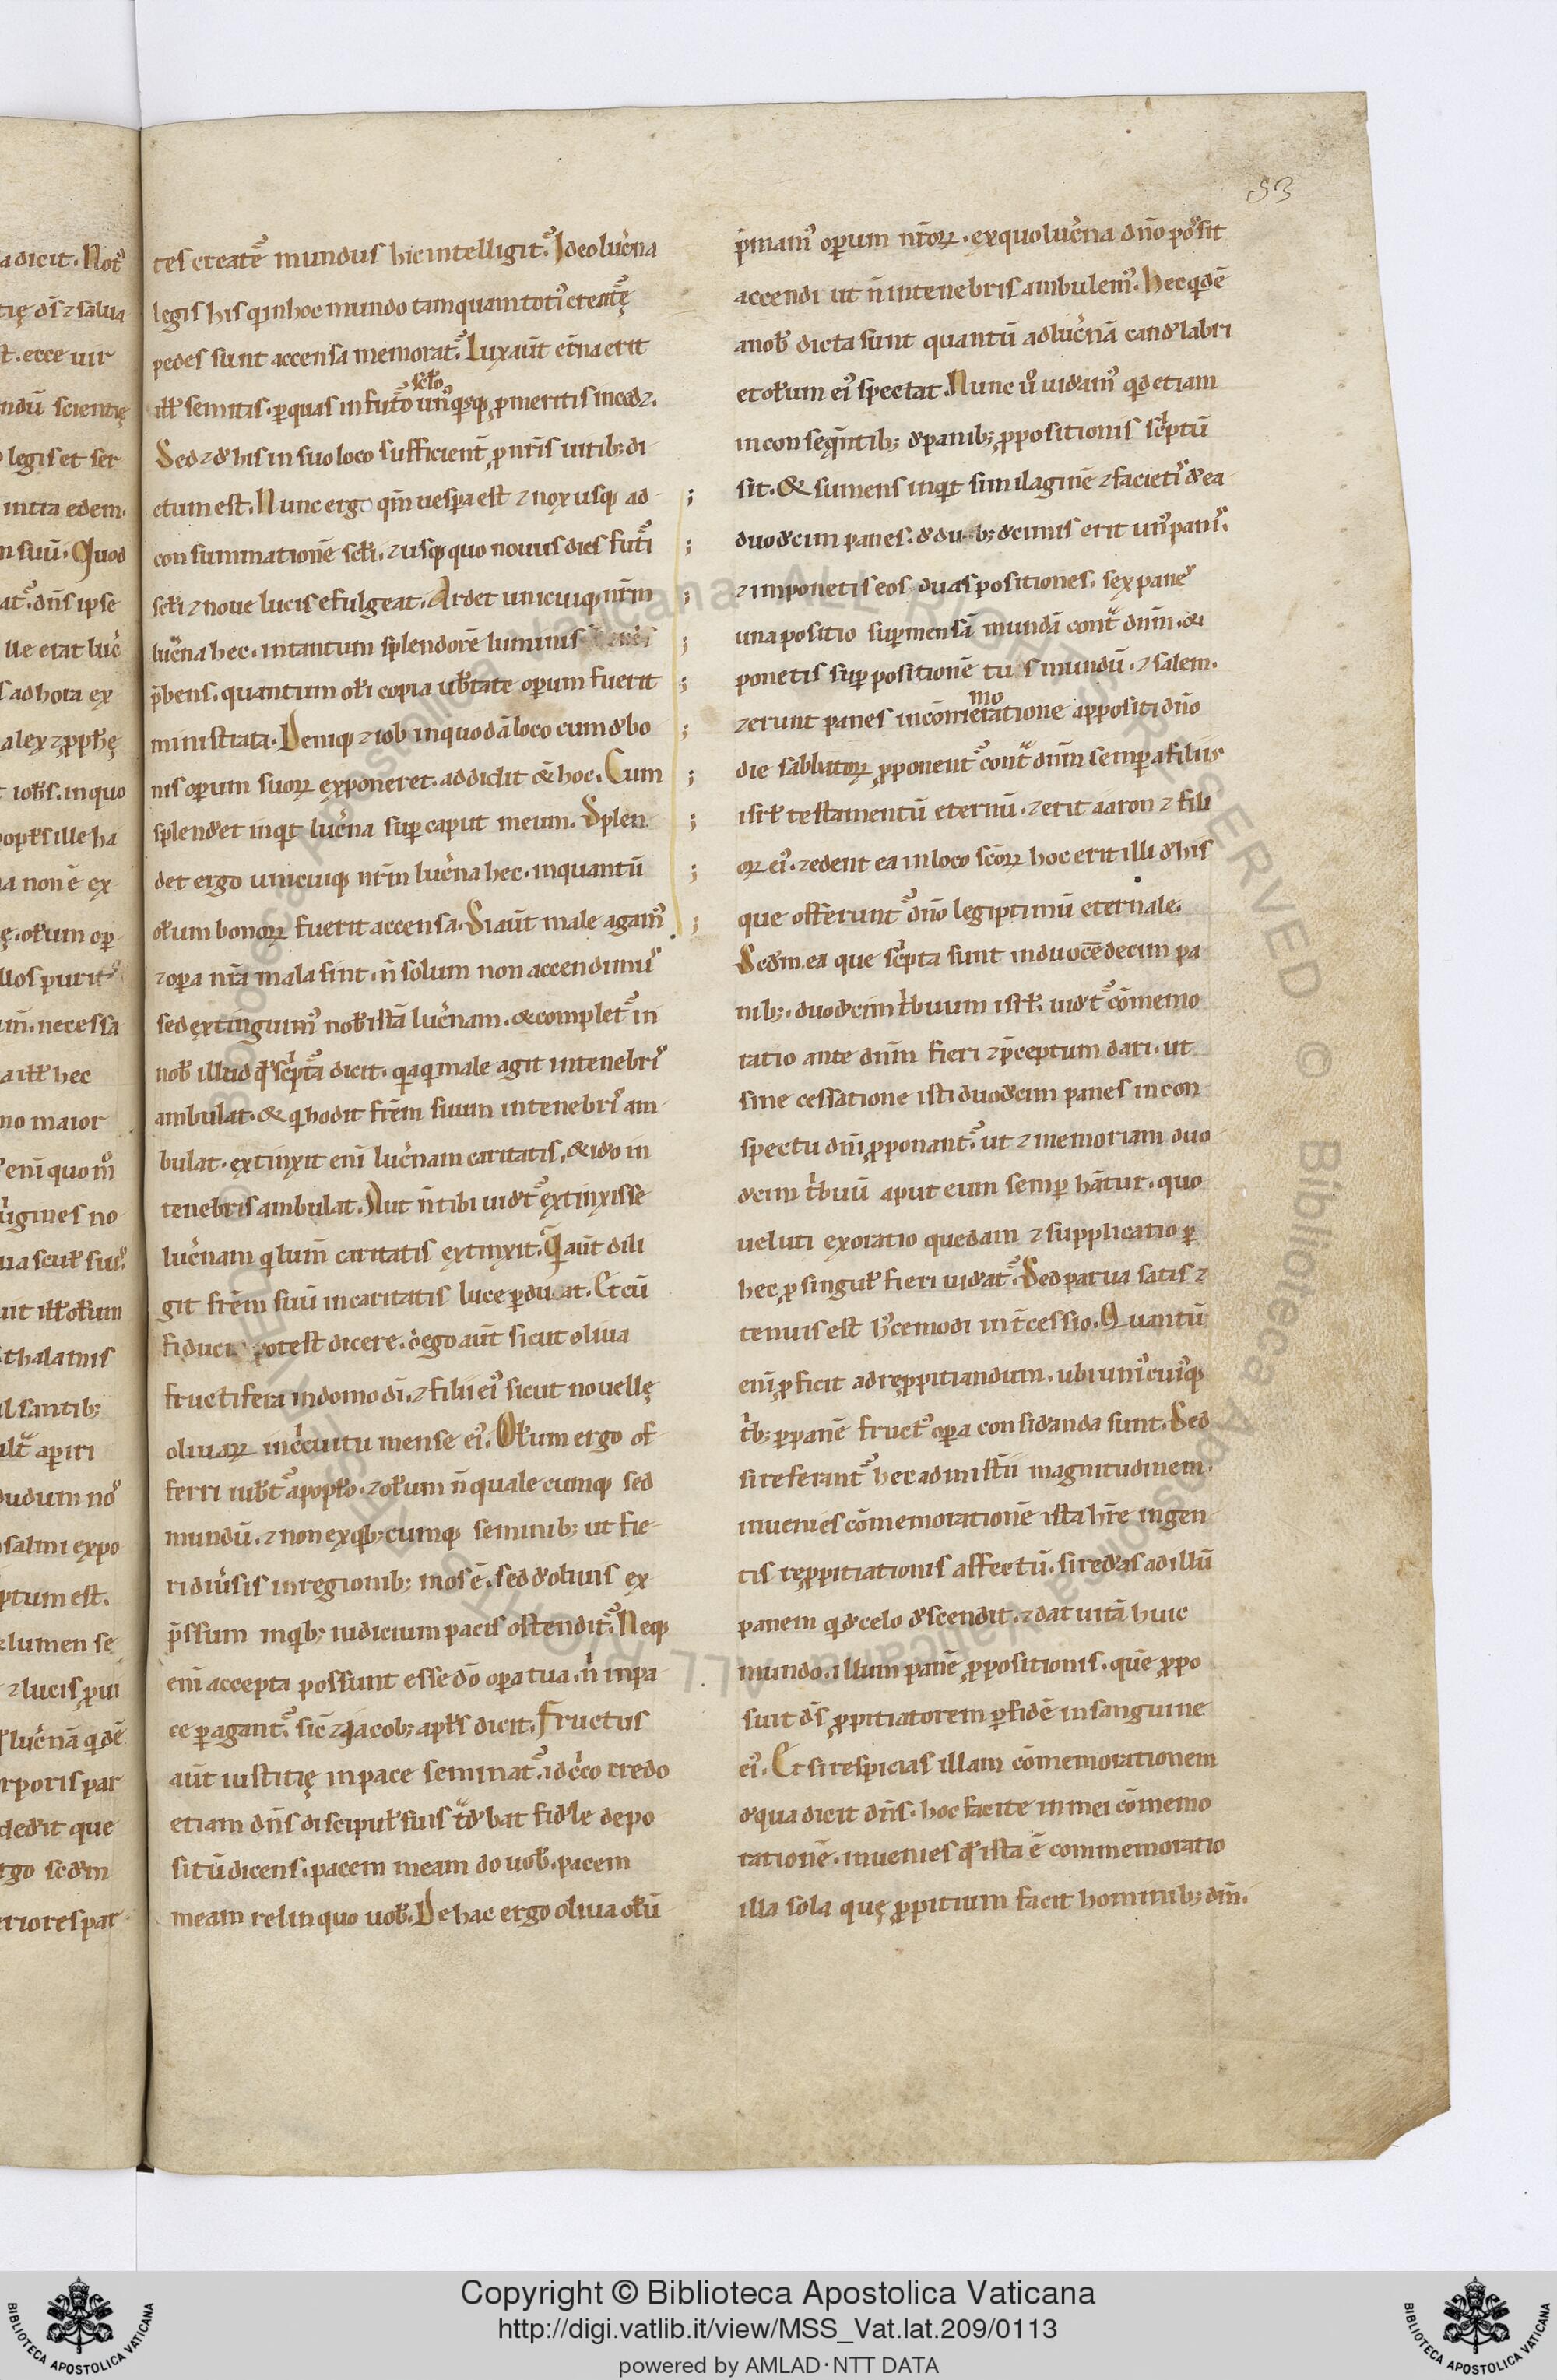 53
tes creatę mundus hic intelligit᷑. Ideo luc̄na
legis his qͥ in hoc mundo tamquam totiꝰ creatᷓę
pedes sunt accensa memorat᷑. Lux aūt et̄na erit
seclo
ill̵ semitis. ꝑ quas in fut᷑o unꝰqͥsqꝫ ꝓ meritis inced᷑.
Sed ⁊ de his in suo loco sufficient̄ ꝓ nr̄is uirib; di
ctum est. Nunc ergo qm̄ uespa est ⁊ nox usqꝫ ad
consummationē scl̄i. ⁊ usqꝫ quo nouus dies fut᷑i
scl̄i ⁊ noue lucis efulgeat. Ardet unicuiqꝫ nr̄m
luc̄na hec. in tantum splendorē luminis
p̄bens. quantum olei copia ub̄tate oꝑum fuerit
ministrata. Deniqꝫ ⁊ iob in quodā loco cum de bo
nis oꝑum suoꝝ exponeret. addidit & hoc. Cum
splendet inqͥt luc̄na suꝑ caput meum. Splen
det ergo unicuiqꝫ nr̄m luc̄na hec. in quantū
oleum bonoꝝ fuerit accensa. Si aūt male agamꝰ
⁊ oꝑa nr̄a mala sint. n̄ solum non accendimꝰ
sed extinguimꝰ nob̵ istā luc̄nam. & complet᷑ in
nob̵ illud qd̵ sc̄pt᷑a dicit. qͥa qͥ male agit in tenebrˢ
ambulat. & qͥ hodit fr̄em suum in tenebrˢ am
bulat. extinxit enī luc̄nam caritatis, & ideo in
tenebris ambulat. Aut n̄ tibi uidet᷑ extinxisse
luc̄nam qͥ lum̄ caritatis extinxit. Qͥ aūt dili
git fr̄em suū in caritatis luce ꝑdurat. Et cū
fiducia potest dicere. ego aūt sicut oliua
fructifera in domo dī. ⁊ filii eiꝰ sicut nouellę
oliuaꝝ in cͥcuitu mense eiꝰ. Oleum ergo of
ferri iubet᷑ a popl̄o. ⁊ oleum n̄ quale cumqꝫ sed
mundū. ⁊ non ex qͥb;cumqꝫ seminib; ut fie
ri diūsis in regionib; mos ē. sed de oliuis ex
p̄ssum in qͥb; iudicium pacis ostendit᷑. Neqꝫ
enī accepta possunt esse dō oꝑa tua. nͥ in pa
ce ꝑagant᷑. sic̄ ⁊ iacob; apl̄s dicit. Fructus
aūt iustitię in pace seminat᷑. idcͥco credo
etiam dn̄s discipul̵ suis tᷓdebat fidele depo
sitū dicens. pacem meam do uob̵. pacem
meam relinquo uob̵. De hac ergo oliua oleū
p̄mamꝰ oꝑum nr̄oꝝ. ex quo luc̄na dn̄o possit
accendi ut n̄ in tenebris ambulemꝰ. Hec qͥdē
a nob̵ dicta sunt quantū ad luc̄nā candelabri
et oleum eiꝰ spectat. Nunc uͦ uideamꝰ qͥd etiam
in conseq̄ntib; de panib; ꝓpositionis sc̄ptū
sit. & sumens inqͥt similaginē ⁊ facietis de ea
duodecim panes. de duab; decimis erit unꝰ panis.
⁊ imponetis eos duas positiones. sex panes
una positio suꝑ mensā mundā contᷓ dnm̄. &
ponetis suꝑ positionē tus mundū. ⁊ salem.
mo
⁊ erunt panes in com̄eratione appositi dn̄o
die sabbatoꝝ ꝓponent᷑ contᷓ dnm̄ semꝑ a filiis
isrl̵ testamentū eternū. ⁊ erit aaron ⁊ fili
oꝝ eiꝰ. ⁊ edent ea in loco sc̄oꝝ hoc erit illi de his
que offerunt᷑ dn̄o legiptimū eternale.
Sedm̄ ea que sc̄pta sunt in duocēdecim pa
nib;. duodecim tͥbuum isrl̵. uidet᷑ cōmemo
ratio ante dnm̄ fieri ⁊ p̄ceptum dari. ut
sine cessatione isti duodecim panes in con
spectu dnī ꝓponant᷑. ut ⁊ memoriam duo
decim tͥbuū aput eum semꝑ hāt᷑ur. quo
ueluti exoratio quedam ⁊ supplicatio ꝑ
hec ꝓ singul̵ fieri uideat᷑. Sed parua satis ⁊
tenuis est hꝰcemodi int̄cessio. Quantū
enī ꝓficit ad repꝓpitiandum. ubi uniꝰcuiꝰqꝫ
tͥb; ꝑ panē fructꝰ oꝑa consideranda sunt. Sed
si referant᷑ hec ad mist̄ii magnitudinem.
inuenies cōmemorationē ista hr̄e ingen
tis repꝓpitiationis affectū. si redeas ad illū
panem qͥ de celo descendit. ⁊ dat uitā huic
mundo. illum panē ꝓpositionis. quē ꝓpo
suit ds̄ ꝓpitiatorem ꝑ fidē in sanguine
eiꝰ. Et si respicias illam cōmemorationem
de qua dicit dn̄s. hoc facite in mei cōmemo
rationē. inuenies qd̵ ista ē commemoratio
illa sola quę ꝓpitium facit hominib; dm̄.
Copyright © Biblioteca Apostolica Vaticana
http://digi.vatlib.it/view/MSS_Vat.lat.209/0113
powered by AMLAD·NTT DATA
BIBLIOTECA APOSTOLICA VATICANA
BIBLIOTECA APOSTOLICA VATICANA